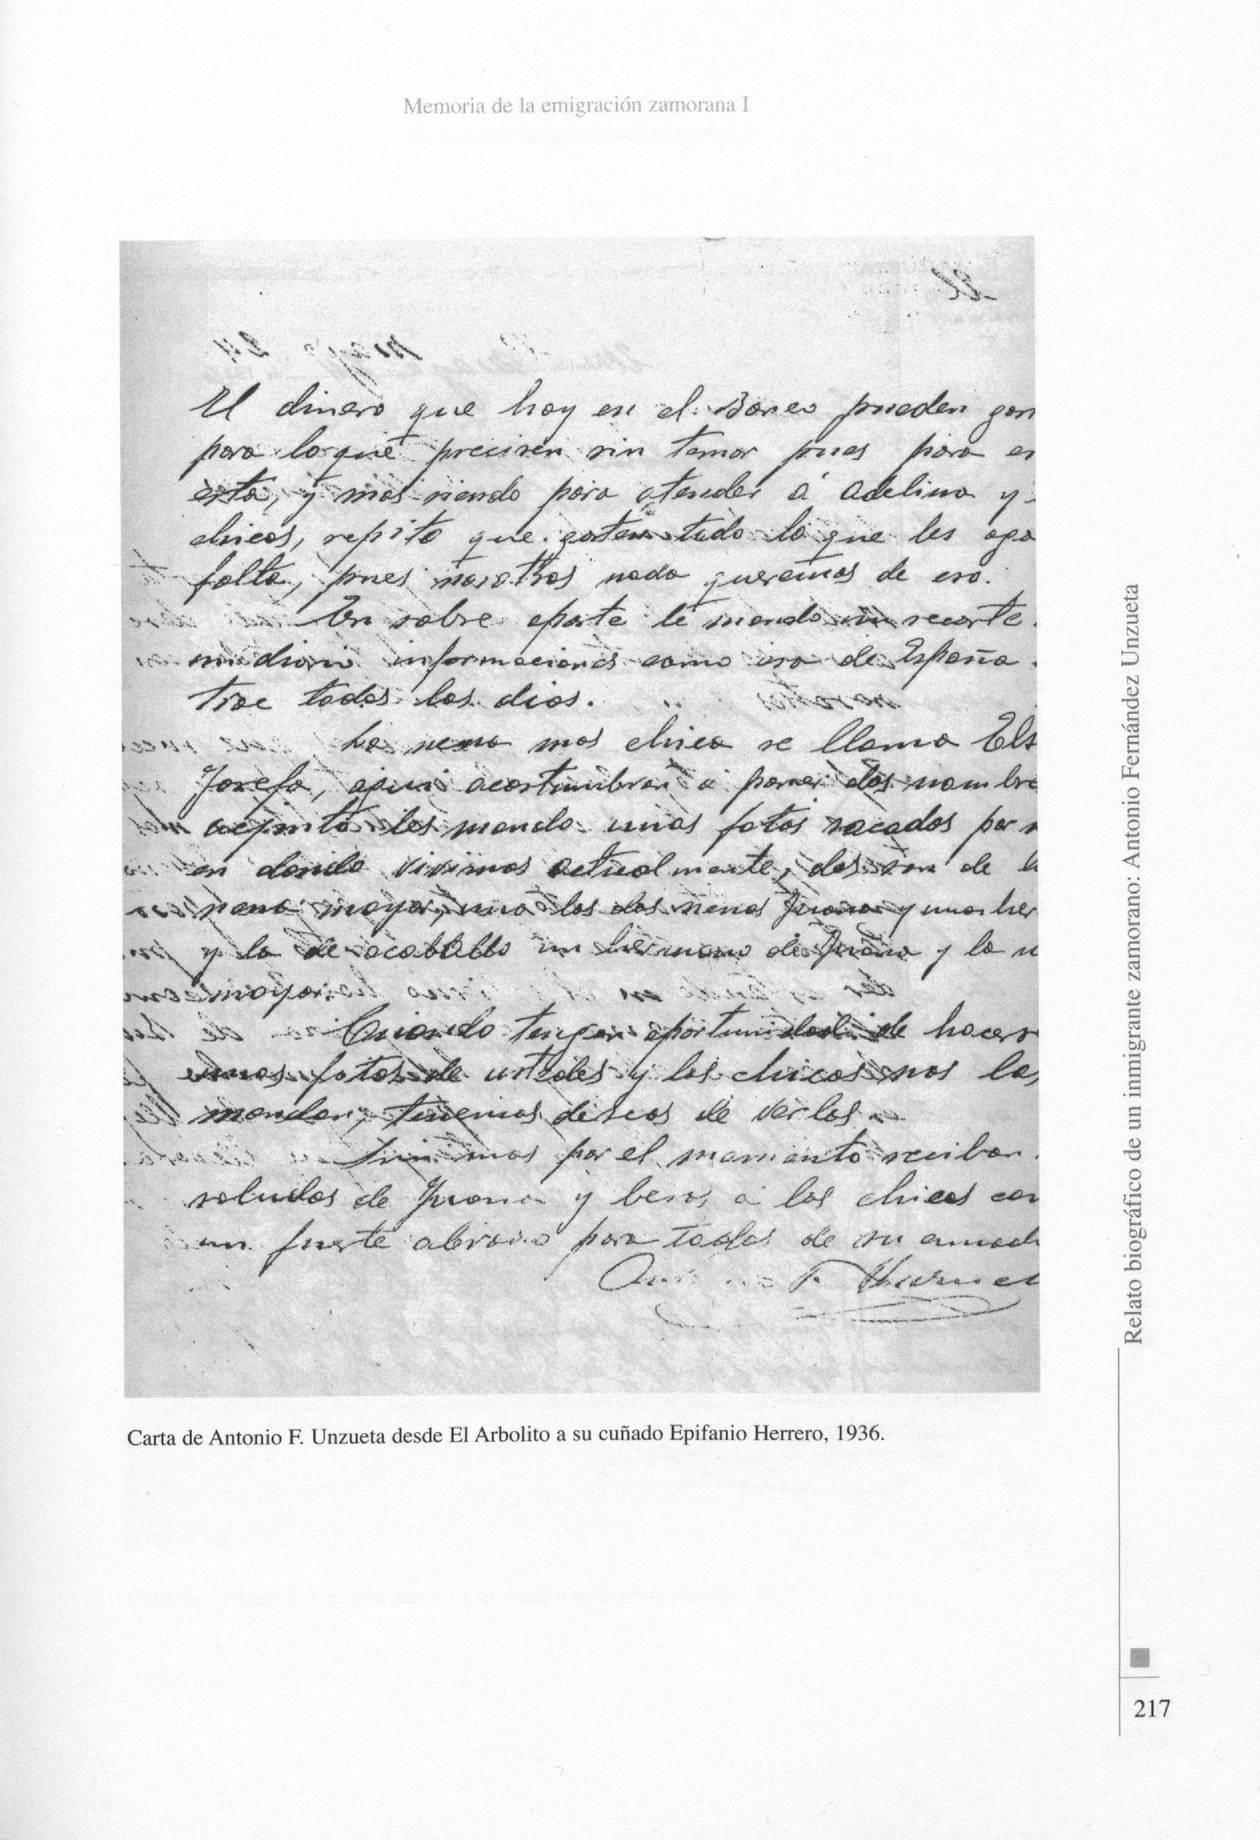 Memoria de la emigración zamorana I
El dinero que hay en el Banco pueden gas
para lo que precisen sin temor pues para es
esta, y mas siendo para atender á Adelina y
chicos, repito que gasten todo lo que les aga
falta, pues nosotros nada queremos de eso.
En sobre aparte le mando un recorte
un diario informaciones como esa de España
trae todos los dias.
La nena mas chica se llama Els
Josefa, aqui acostumbran a poner dos nombre
adjunto les mando unas fotos sacadas por
en donde vivimos actualmente, dos son de l
nena mayor, una los dos nenas Juana y unos her
y la de acaballo un hermano de Juana y la n
mayor.
Cuando tengan oportunidad de hacers
unas fotos de ustedes y los chicos nos las
mandan, tenemos deseos de verlos.
Sin mas por el momento reciban
saludos de Juana y besos a los chicos con
un fuerte abrazo para todos de su cuñad
Antonio F. Unzuet
Carta de Antonio F. Unzueta desde El Arbolito a su cuñado Epifanio Herrero, 1936.
Relato biográfico de un inmigrante zamorano: Antonio Fernández Unzueta
217